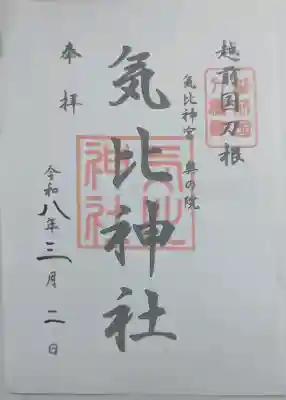 越前国刀根
氣比神宮 奥の院
気比神社
奉拝
令和八年三月二日
気比神社